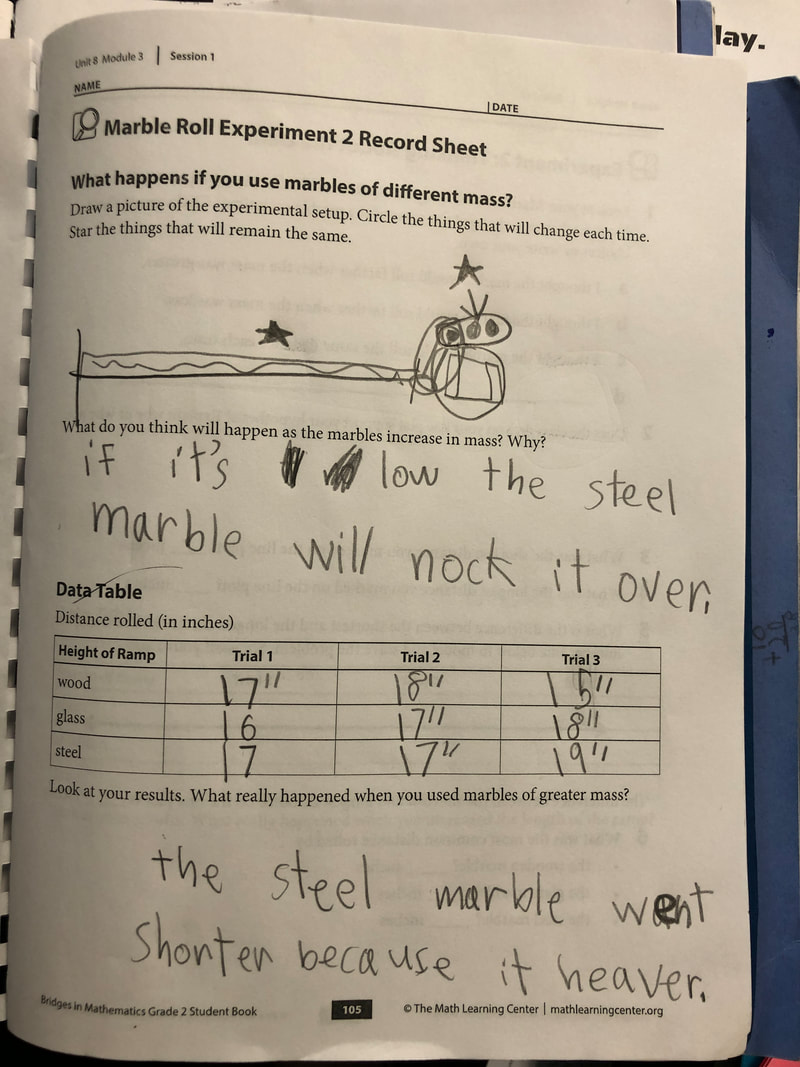 lay.
Unit 8 Module 3 | Session 1
NAME | DATE
Marble Roll Experiment 2 Record Sheet
What happens if you use marbles of different mass?
Draw a picture of the experimental setup. Circle the things that will change each time.
Star the things that will remain the same.
What do you think will happen as the marbles increase in mass? Why?
if it's low the steel
marble will nock it over.
Data Table
Distance rolled (in inches)
Height of Ramp Trial 1 Trial 2 Trial 3
wood 17" 18" 15"
glass 16 17" 18"
steel 17 17" 19"
Look at your results. What really happened when you used marbles of greater mass?
the steel marble went
shorter because it heaver.
Bridges in Mathematics Grade 2 Student Book 105 © The Math Learning Center | mathlearningcenter.org